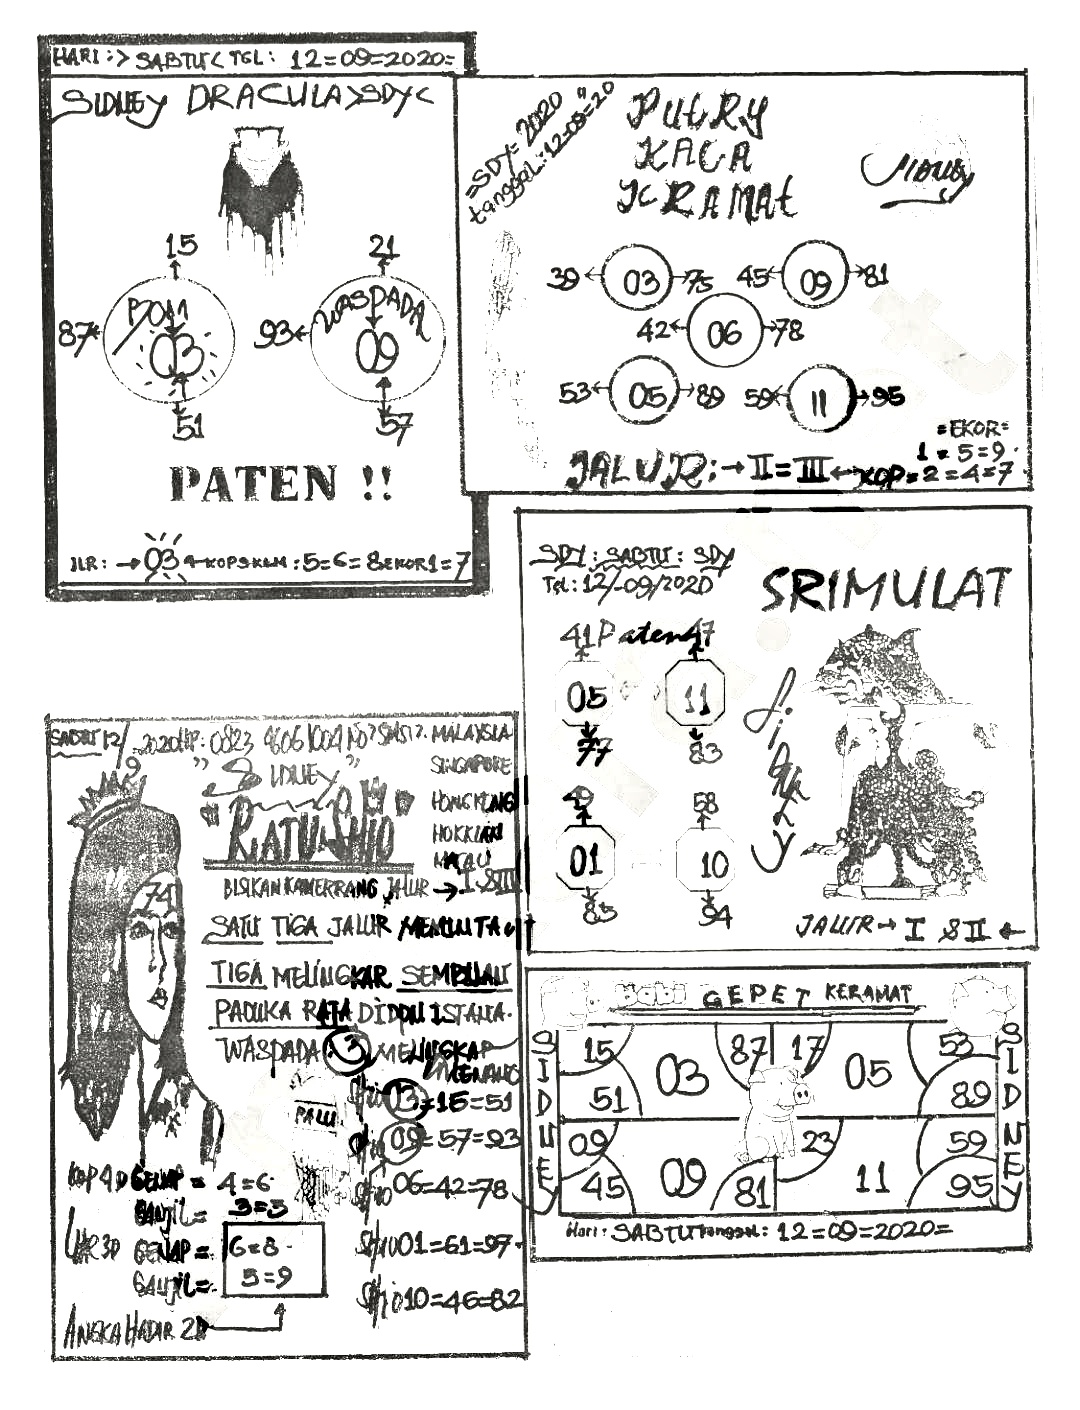 HARI :> SABTU < TGL : 12=09=2020=
SIDNEY DRACULA >SDY<
15
21
BOM
WASPADA
87
03
93
09
51
57
PATEN !!
JLR : → 03 ← KOP$KLM : 5=6=8 EKOR 1=7
=SDY= 2020
tanggal : 12=09=20
PUtRY
KACA
KRAMAt
SIDNEY
39 ← 03 → 75
45 ← 09 → 81
42 ← 06 → 78
53 ← 05 → 89
59 ← 11 → 95
=EKOR=
1=5=9
JALUR : → II = III ← KOP=2=4=7
SDY : SABTU : SDY
TGL : 12/-09/2020
SRIMULAT
41 Paten 47
05
11
77
83
SidNEY
49
58
01
10
83
94
JALUR → I $ II ←
SABTU 12/9 2020 HP: 0823 4606 1004 NO? SMS!?
MALAYSIA
" SIDNEY "
SINGAPORE
"RATU SHIO"
HONGKONG
HOKKIAN
MACAU
JALUR → I $ III
74
SATU TIGA JALUR MEMINTA
TIGA MELINGKAR SEMBILAN
PADUKA RAJA DIDALAM ISTANA.
WASPADA 03 MELINGKAR
MENANG
PALU
Shio 03=15=51
Shio 09=57=93
Shio 06=42=78
Shio 01=61=97
Shio 10=46=82
KOP 4D GENAP = 4=6
GANJIL = 3=3
LHR 3D GENAP = 6=8
GANJIL = 5=9
ANGKA HADIR 2D
Babi GEPET KERAMAT
SIDNEY
15
03
87
17
05
53
51
89
09
09
23
59
45
81
11
95
SIDNEY
Hari : SABTU tanggal : 12=09=2020=